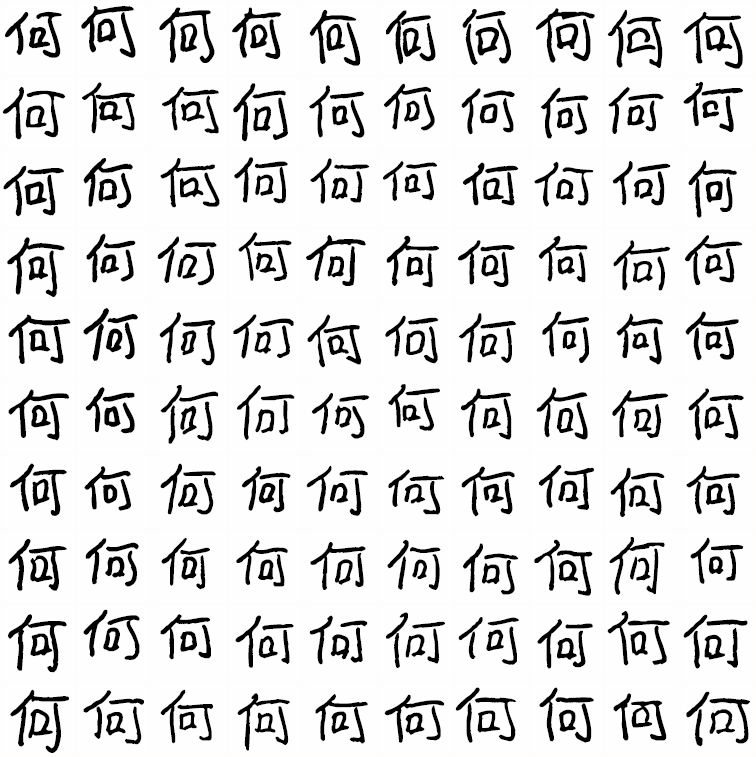 何何何何何何何何何何
何何何何何何何何何何
何何何何何何何何何何
何何何何何何何何何何
何何何何何何何何何何
何何何何何何何何何何
何何何何何何何何何何
何何何何何何何何何何
何何何何何何何何何何
何何何何何何何何何何